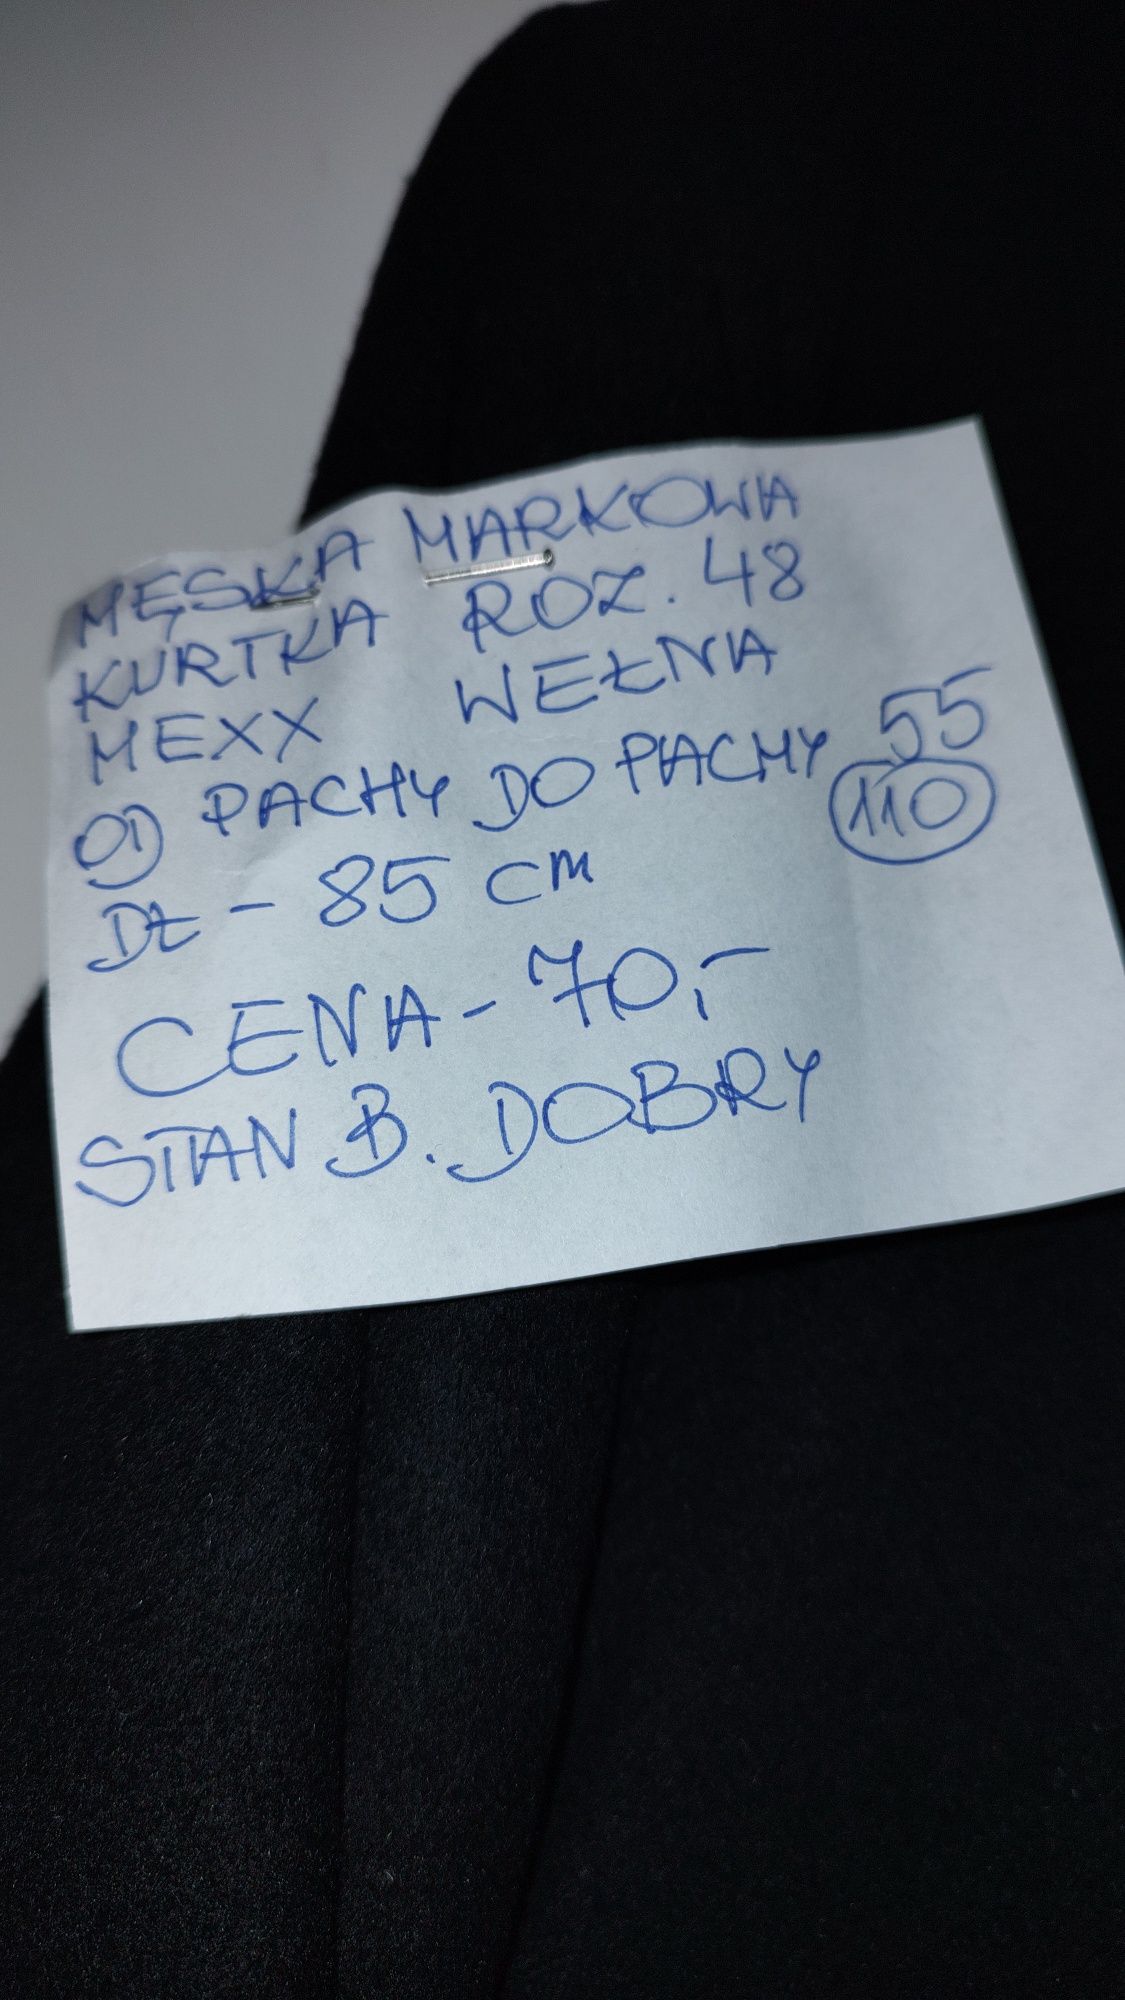 MĘSKA MARKOWA
KURTKA ROZ. 48
MEXX WEŁNA
OD PACHY DO PACHY 55
110
DŁ - 85 cm
CENA - 70,-
STAN B. DOBRY